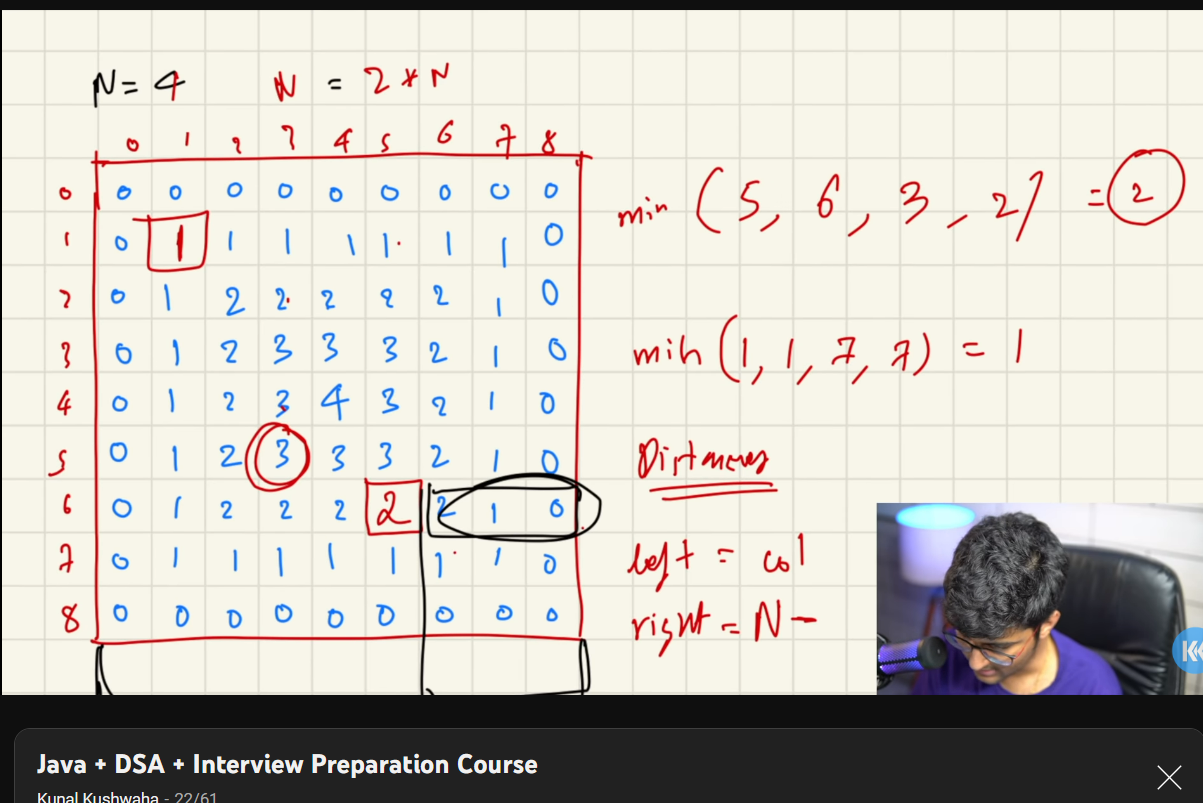 N = 4 N = 2 * N
0 1 2 3 4 5 6 7 8
0 0 0 0 0 0 0 0 0 0
1 0 1 1 1 1 1 1 1 0
2 0 1 2 2 2 2 2 1 0
3 0 1 2 3 3 3 2 1 0
4 0 1 2 3 4 3 2 1 0
5 0 1 2 3 3 3 2 1 0
6 0 1 2 2 2 2 2 1 0
7 0 1 1 1 1 1 1 1 0
8 0 0 0 0 0 0 0 0 0
min (5, 6, 3, 2) = 2
min (1, 1, 7, 7) = 1
Distances
left = col
right = N -
Java + DSA + Interview Preparation Course
Kunal Kushwaha - 22/61